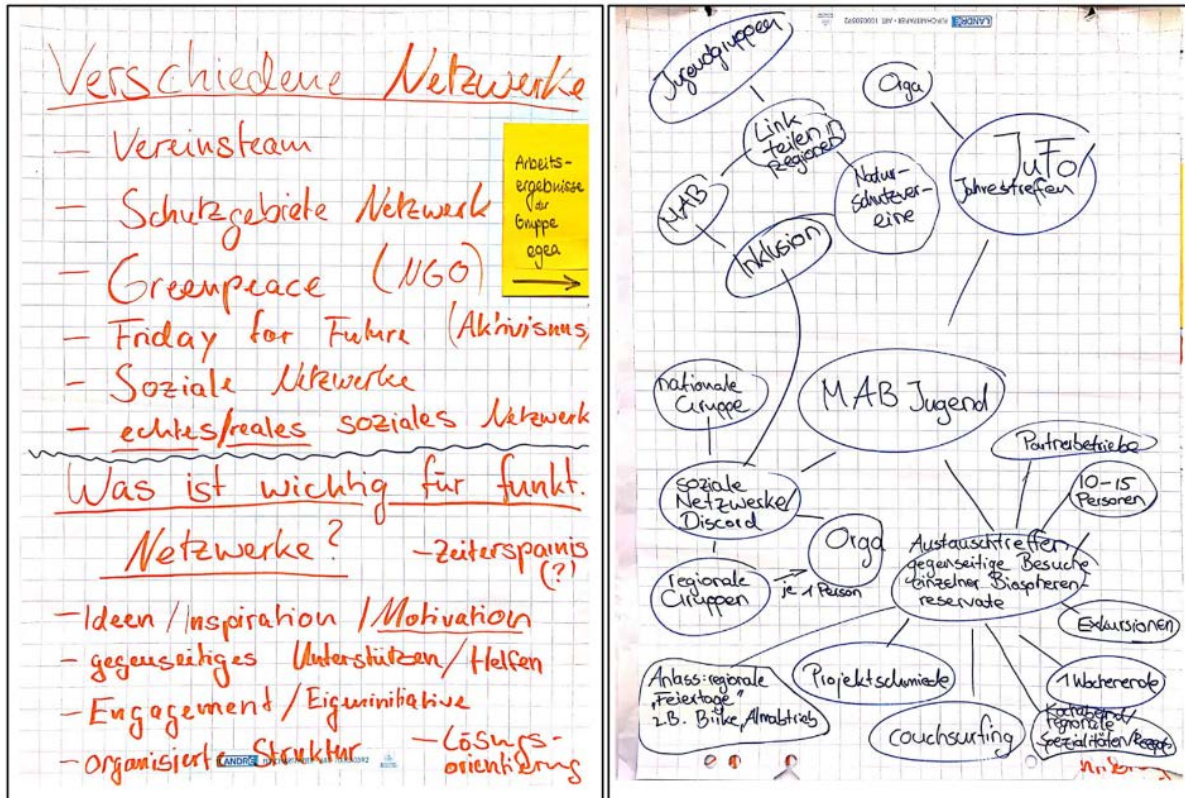 Verschiedene Netzwerke
- Vereinsteam
- Schutzgebiete Netzwerk
- Greenpeace (NGO)
- Friday for Future (Aktivismus)
- Soziale Netzwerke
- echtes/reales soziales Netzwerk
Arbeits-
ergebnisse
der
Gruppe
egea
Was ist wichtig für funkt.
Netzwerke?
- Zeitersparnis
(?)
- Ideen / Inspiration / Motivation
- gegenseitiges Unterstützen / Helfen
- Engagement / Eigeninitiative
- organisiert Struktur
- Lösungs-
orientierung
LANDRÉ
LANDRÉ
Jugendgruppen
Orga
Link
teilen in
Regionen
JuFo/
Jahrestreffen
MAB
Natur-
schutzver-
eine
Inklusion
nationale
Gruppe
MAB Jugend
Partnerbetriebe
10-15
Personen
soziale
Netzwerke/
Discord
Orga
Austauschtreffen/
gegenseitige Besuche
einzelner Biosphären-
reservate
regionale
Gruppen
je 1 Person
Exkursionen
Anlass: regionale
"Feiertage"
z.B. Biike, Almabtrieb
Projektschmiede
1 Wochenende
Couchsurfing
Kochabend/
regionale
Spezialitäten/Rezepte